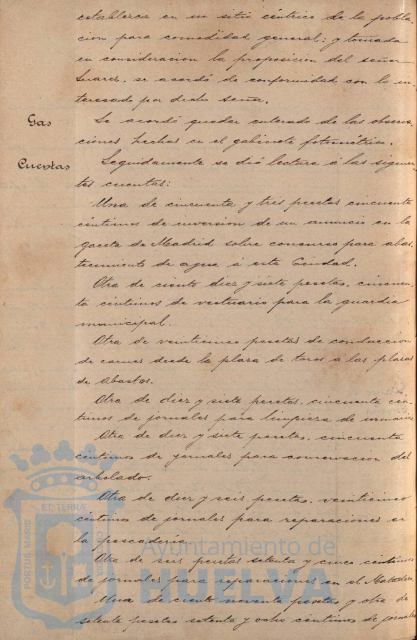 establezca en un sitio céntrico de la pobla-
cion para comodidad general; y tomada
en consideracion la proposicion del señor
Suarez, se acordó de conformidad con lo in-
teresado por dicho señor.
Gas
Se acordó quedar enterado de las observa-
ciones hechas en el gabinete fotométrico.
Cuentas
Seguidamente se dió lectura á las siguien-
tes cuentas:
Una de cincuenta y tres pesetas cincuenta
céntimos de inversion de un anuncio en la
gaceta de Madrid sobre concurso para abas-
tecimiento de agua á esta Ciudad.
Otra de ciento diez y siete pesetas, cincuen-
ta céntimos de vestuario para la guardia
municipal.
Otra de veinticinco pesetas de conduccion
de carnes desde la plaza de toros á las plazas
de Abastos.
Otra de diez y siete pesetas, cincuenta cén-
timos de jornales para limpieza de
Otra de diez y siete pesetas, cincuenta
céntimos de jornales para conservacion del
arbolado.
Otra de diez y seis pesetas, veinticinco
céntimos de jornales para reparaciones en
la pescadería.
Otra de seis pesetas setenta y cinco céntimos
de jornales para reparaciones en el Matadero.
Una de ciento noventa pesetas y otra de
setenta pesetas setenta y ocho céntimos de jornales
ET TERRÆ
PORTUS MARIS
Ayuntamiento de
HUELVA